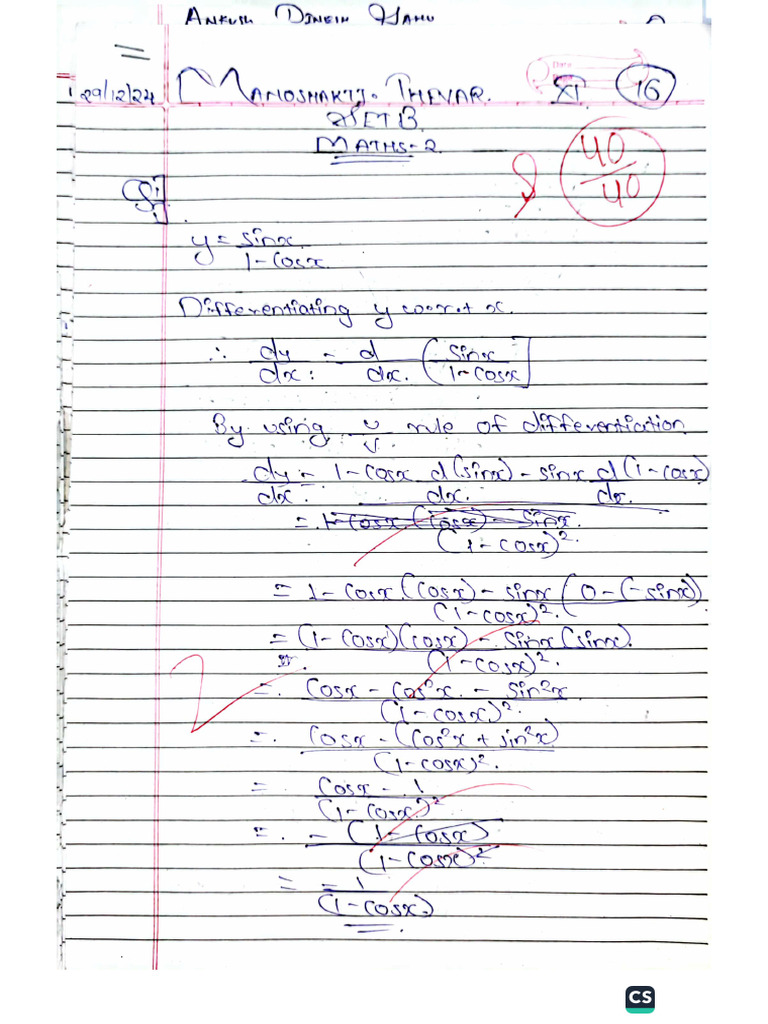 ANKUSH DINESH SAHU
29/12/24 MANOSHAKTI THEVAR. XI 16
SET B
MATHS-2
40/40
Q1]
y = sinx / 1-cosx
Differentiating y w.r.t x.
∴ dy/dx = d/dx (sinx / 1-cosx]
By using u/v rule of differentiation
dy/dx = 1-cosx d(sinx)/dx - sinx d(1-cosx)/dx
= 1-cosx (cosx) - sinx. / (1-cosx)².
= 1-cosx.(cosx) - sinx (0-(-sinx) / (1-cosx)².
= (1-cosx)(cosx) - sinx(sinx). / (1-cosx)².
2
=. cosx - cos²x. - sin²x / (1-cosx)².
=. cosx - (cos²x + sin²x) / (1-cosx)².
= cosx - 1 / (1-cosx)²
=. -(1-cosx) / (1-cosx)²
= -1 / (1-cosx)
CS